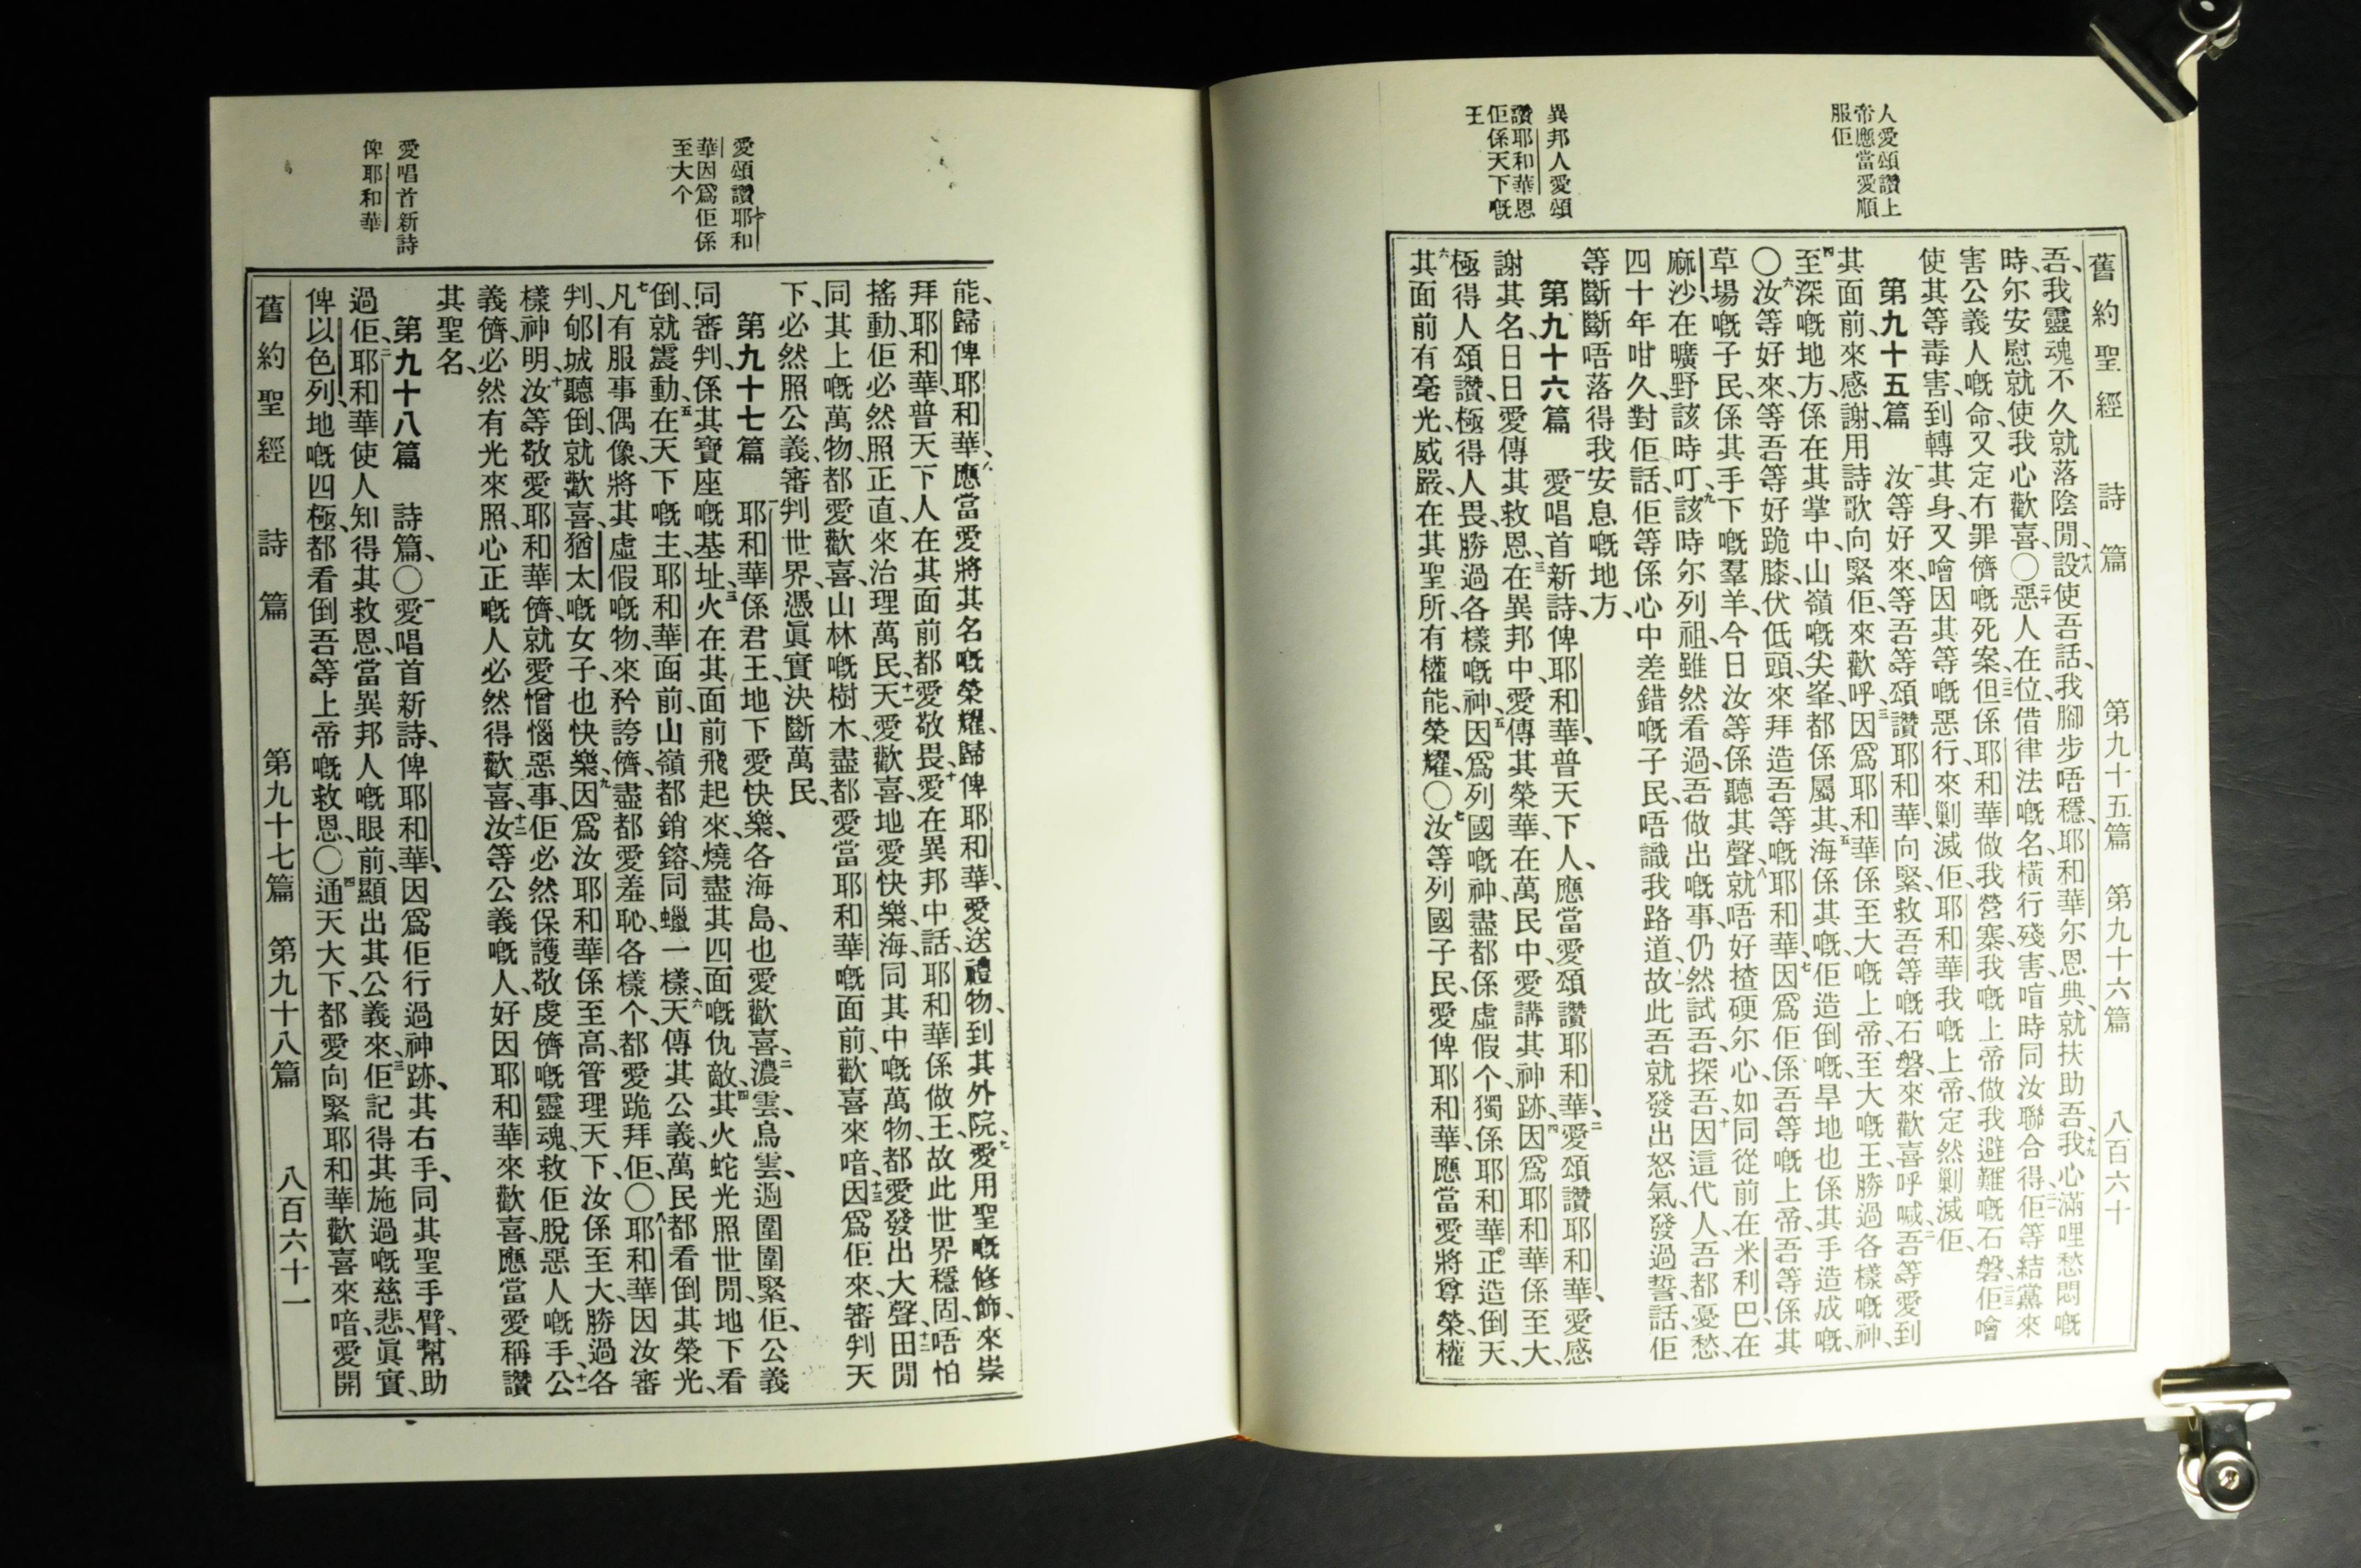 人愛頌讚上
帝應當愛順
服佢
異邦人愛頌
讚耶和華恩
佢係天下嘅
王
舊約聖經 詩篇 第九十五篇 第九十六篇 八百六十
吾、我靈魂不久就落陰間、十八設使吾話、我腳步唔穩、耶和華尔恩典、就扶助吾、十九我心滿哩愁悶嘅
時、尔安慰就使我心歡喜、〇二十惡人在位、借律法嘅名、橫行殘害、啃時同汝聯合得、二一佢等結黨來
害公義人嘅命、又定冇罪儕嘅死案、二二但係耶和華做我營寨、我嘅上帝做我避難嘅石磐、二三佢噲
使其等毒害、到轉其身、又噲因其等嘅惡行、來剿滅佢、耶和華我嘅上帝、定然剿滅佢、
第九十五篇 一汝等好來、等吾等頌讚耶和華、向緊救吾等嘅石磐、來歡喜呼喊、二吾等愛到
其面前、來感謝、用詩歌向緊佢、來歡呼、三因爲耶和華係至大嘅上帝、至大嘅王、勝過各樣嘅神、
四至深嘅地方、係在其掌中、山嶺嘅尖峯、都係屬其、五海係其嘅、佢造倒嘅、旱地也係其手造成嘅、
〇六汝等好來、等吾等好跪膝、伏低頭、來拜造吾等嘅耶和華、七因爲佢係吾等嘅上帝、吾等係其
草場嘅子民、係其手下嘅羣羊、今日汝等係聽其聲、八就唔好揸硬尔心、如同從前在米利巴、在
麻沙、在曠野該時叮、九該時尔列祖、雖然看過吾做出嘅事、仍然試吾、探吾、十因這代人、吾都憂愁、
四十年咁久、對佢話、佢等係心中差錯嘅子民、唔識我路道、十一故此吾就發出怒氣、發過誓話、佢
等斷斷唔落得我安息嘅地方、
第九十六篇 一愛唱首新詩、俾耶和華、普天下人、應當愛頌讚耶和華、二愛頌讚耶和華、愛感
謝其名、日日愛傳其救恩、三在異邦中、愛傳其榮華、在萬民中、愛講其神跡、四因爲耶和華係至大、
極得人頌讚、極得人畏、勝過各樣嘅神、五因爲列國嘅神、盡都係虛假个、獨係耶和華、正造倒天、
六其面前有毫光、威嚴、在其聖所、有權能、榮耀、〇七汝等列國子民、愛俾耶和華、應當愛將尊榮、權
愛頌讚耶和
華因爲佢係
至大个
愛唱首新詩
俾耶和華
能、歸俾耶和華、八應當愛將其名嘅榮耀、歸俾耶和華、愛送禮物、到其外院、九愛用聖嘅修飾、來崇
拜耶和華、普天下人、在其面前、都愛敬畏、十愛在異邦中話、耶和華係做王、故此世界穩固、唔怕
搖動、佢必然照正直、來治理萬民、十一天愛歡喜、地愛快樂、海同其中嘅萬物、都愛發出大聲、十二田間
同其上嘅萬物、都愛歡喜、山林嘅樹木、盡都愛當耶和華嘅面前、歡喜來喑、十三因爲佢來、審判天
下、必然照公義、審判世界、憑眞實、決斷萬民、
第九十七篇 一耶和華係君王、地下愛快樂、各海島、也愛歡喜、二濃雲、烏雲、週圍圍緊佢、公義
同審判、係其寶座嘅基址、三火在其面前飛起來、燒盡其四面嘅仇敵、四其火蛇光照世間、地下看
倒、就震動、五在天下嘅主、耶和華面前、山嶺都銷鎔、同蠟一樣、六天傳其公義、萬民都看倒其榮光、
七凡有服事偶像、將其虛假嘅物、來矜誇儕、盡都愛羞恥、各樣个、都愛跪拜佢、〇八耶和華因汝審
判、郇城聽倒、就歡喜、猶太嘅女子、也快樂、九因爲汝耶和華係至高、管理天下、汝係至大、勝過各
樣神明、十汝等敬愛耶和華儕、就愛憎惱惡事、佢必然保護敬虔儕嘅靈魂、救佢脫惡人嘅手、十一公
義儕、必然有光來照、心正嘅人、必然得歡喜、十二汝等公義嘅人、好因耶和華、來歡喜、應當愛稱讚
其聖名、
第九十八篇 詩篇、〇一愛唱首新詩、俾耶和華、因爲佢行過神跡、其右手、同其聖手臂、幫助
過佢、二耶和華使人知得其救恩、當異邦人嘅眼前、顯出其公義來、三佢記得其施過嘅慈悲、眞實、
俾以色列、地嘅四極、都看倒吾等上帝嘅救恩、〇四通天大下、都愛向緊耶和華、歡喜來喑、愛開
舊約聖經 詩篇 第九十七篇 第九十八篇 八百六十一